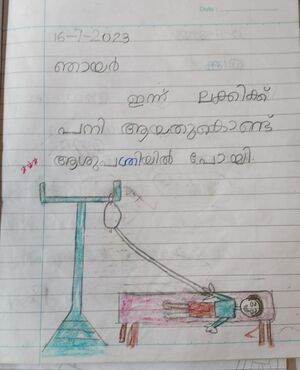 Date :
16-7-2023
ഞായർ
ഇന്ന് ലക്കിക്ക്
പനി ആയതുകൊണ്ട്
ആശുപത്രിയിൽ പോയി.